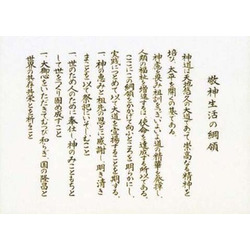 敬神生活の綱領
神道は天地悠久の大道であって、崇高なる精神を
培ひ、太平を開くの基である。
神慮を畏み祖訓をつぎ、いよいよ道の精華を発揮し、
人類の福祉を増進するは、使命を達成する所以である。
ここにこの綱領をかかげて向ふところを明らかにし、
実践につとめて以て大道を宣揚することを期する。
一、神の恵みと祖先の恩とに感謝し、明き清き
まことを以て祭祀にいそしむこと
一、世のため人のために奉仕し、神のみこともちと
して世をつくり固め成すこと
一、大御心をいただきてむつび和らぎ、国の隆昌と
世界の共存共栄とを祈ること